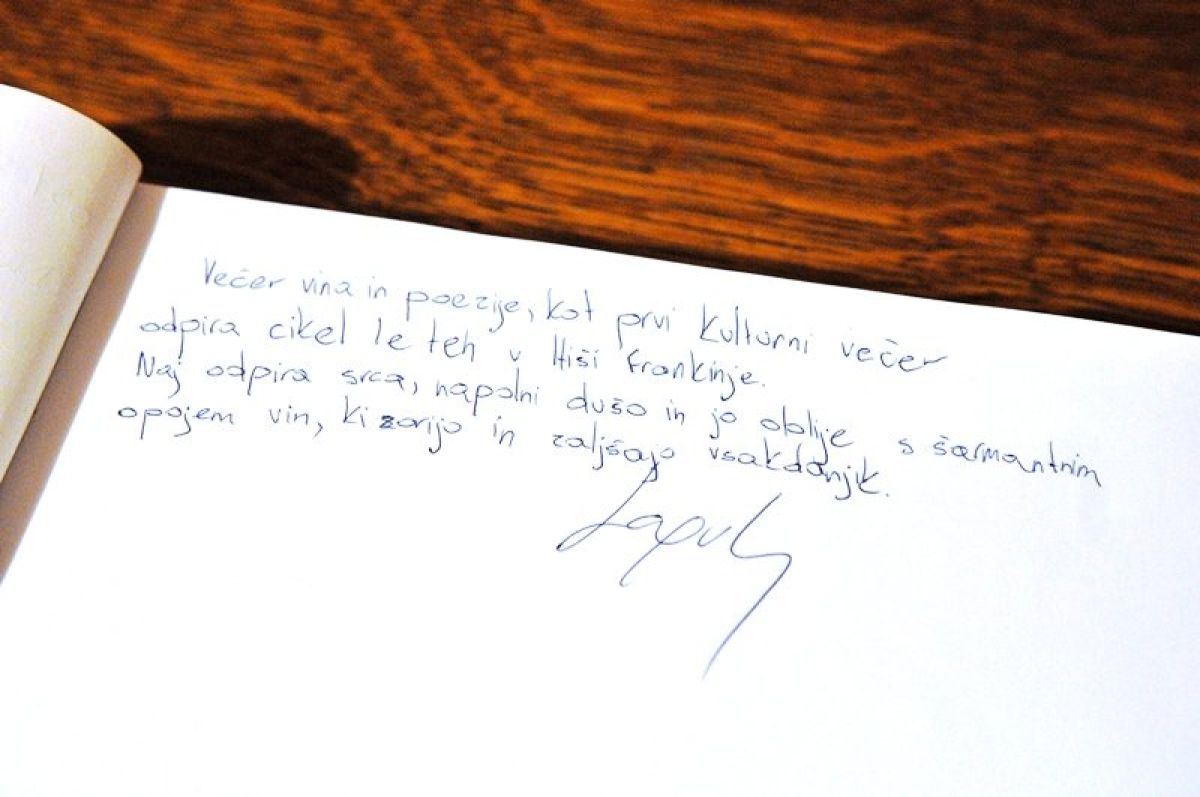 Večer vina in poezije, kot prvi kulturni večer
odpira cikel le teh v Hiši frankinje.
Naj odpira srca, napolni dušo in jo oblije s šarmantnim
opojem vin, ki zorijo in zaljšajo vsakdanjik.